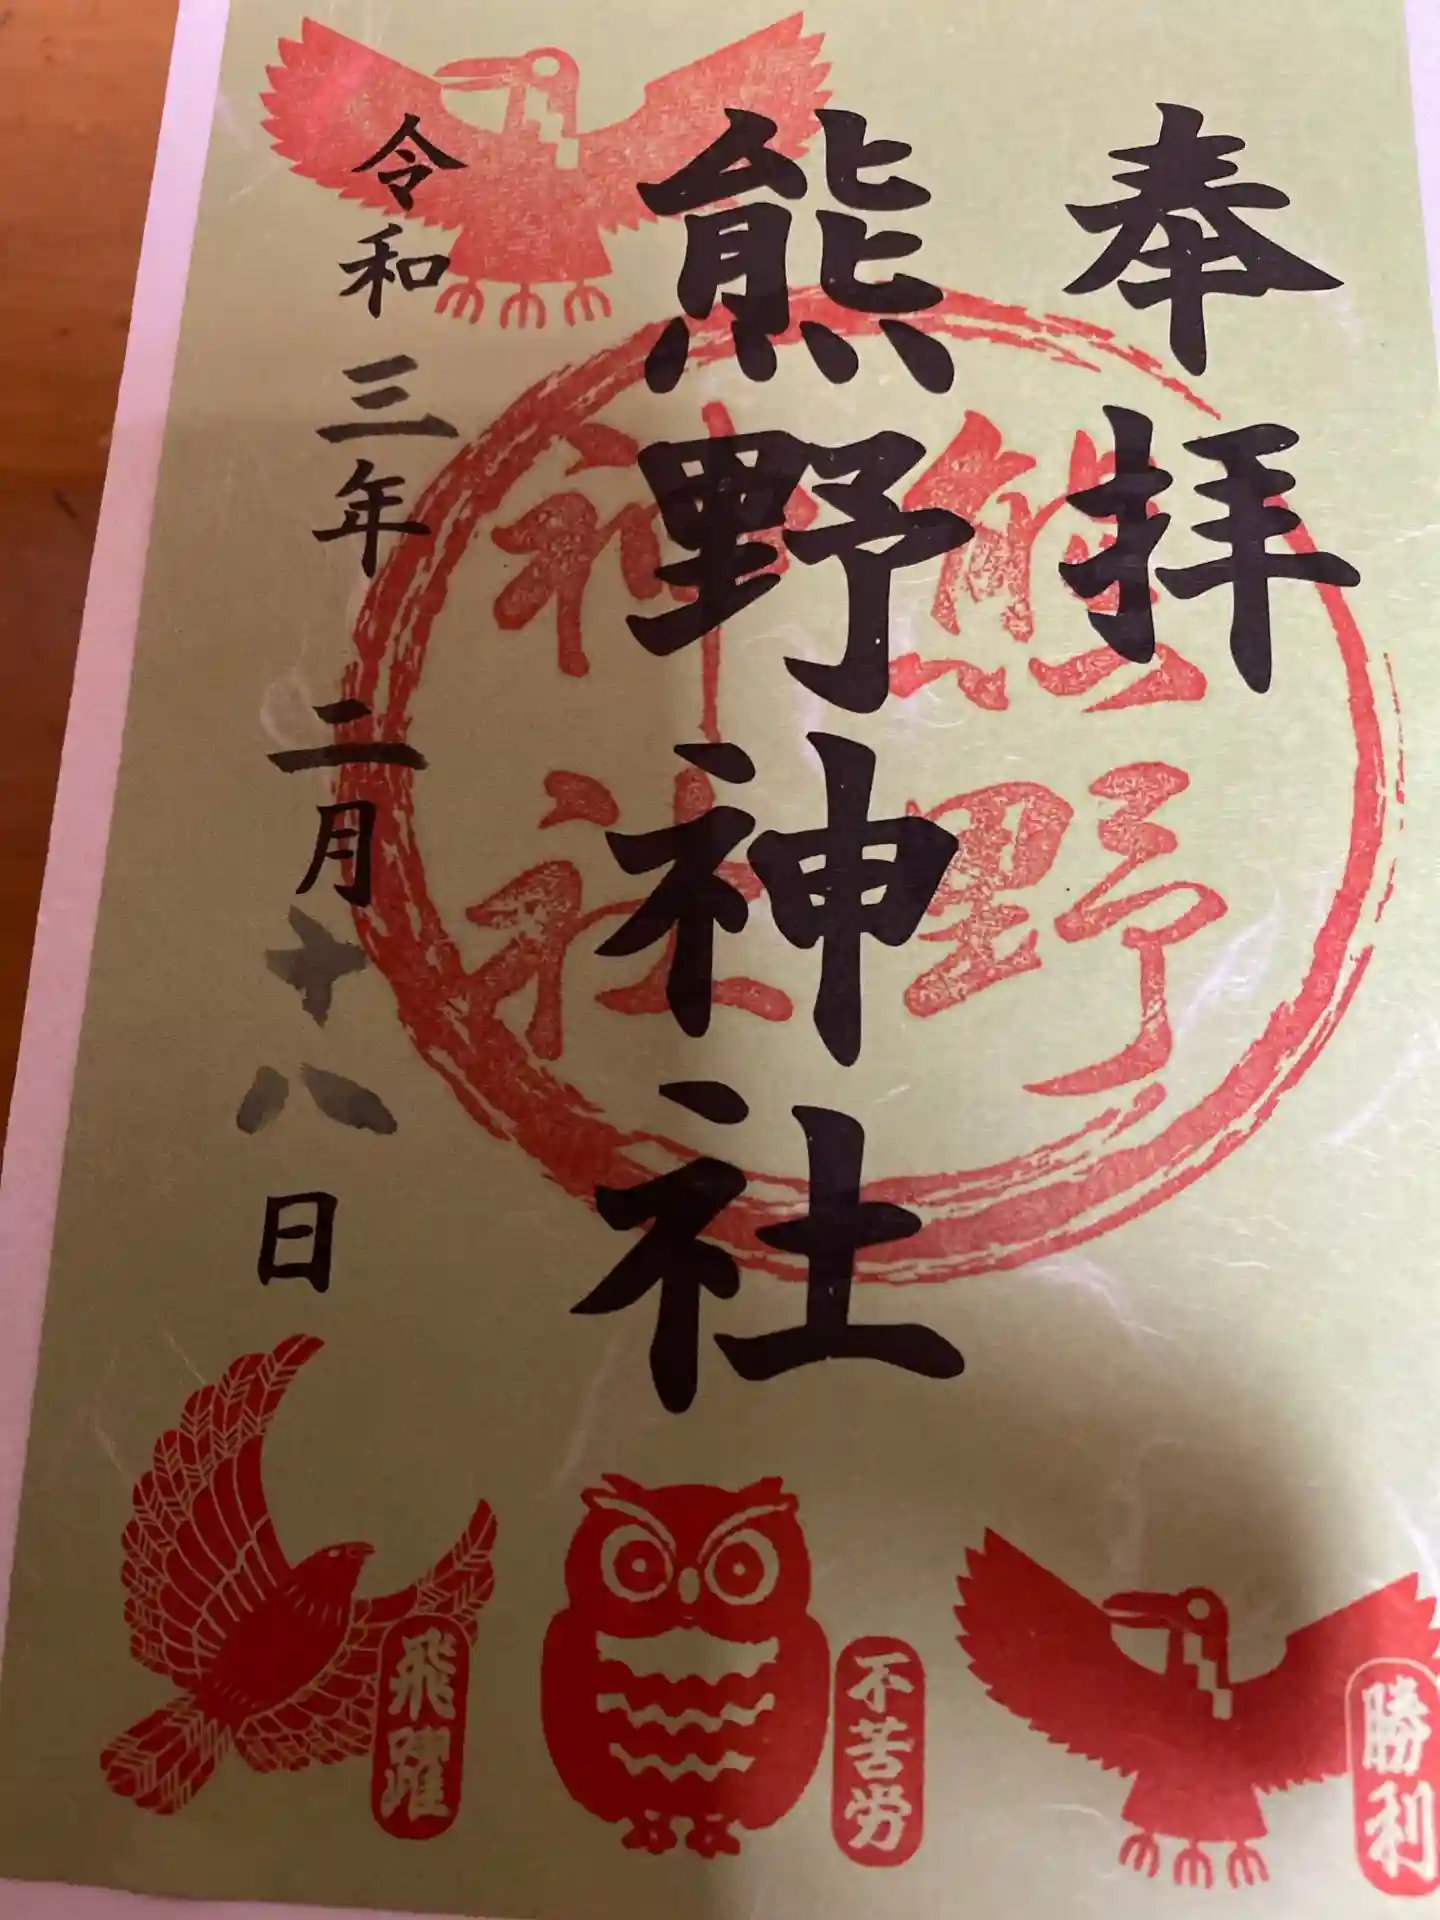 奉拝
熊野神社
熊野
神社
令和三年二月十八日
勝利
不苦労
飛躍